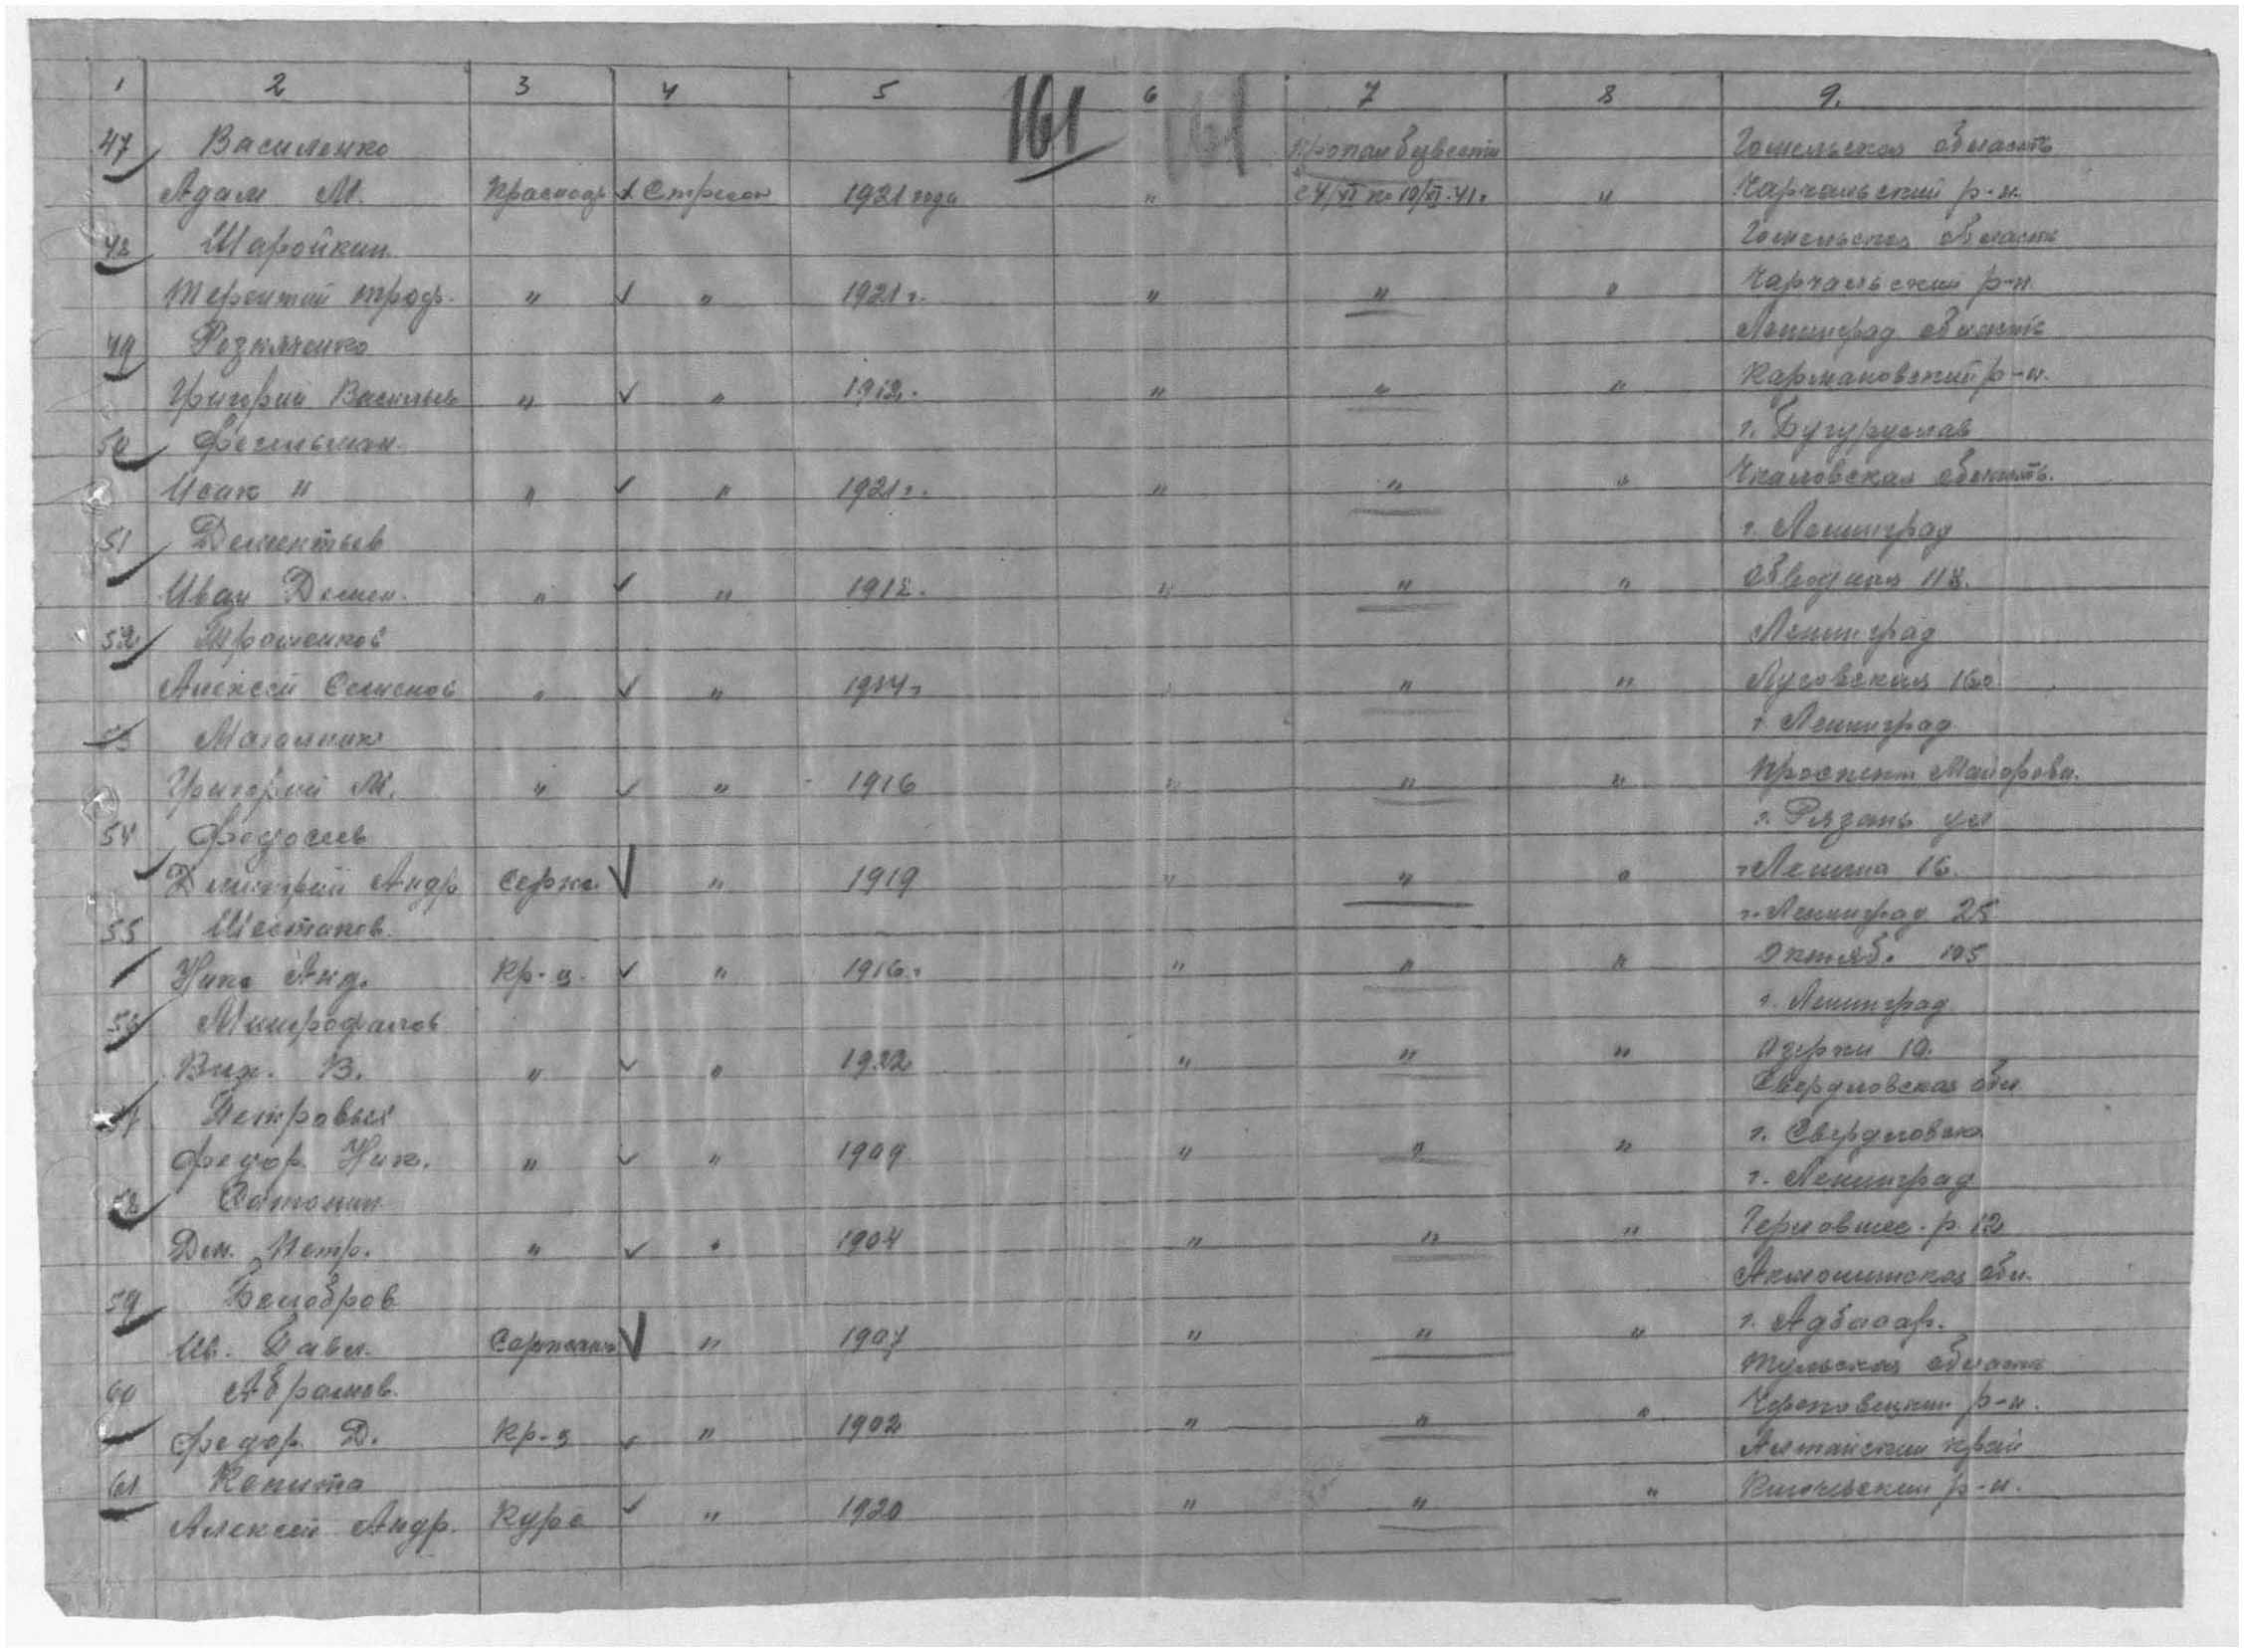 1 2 3 4 5 161 6 161 7 8 9.
47 Василенко Пропал безвести Гомельская область
Адам М. Красноар Стрелок 1921 года " с 4/XI по 10/XI-41г " р-н.
48 Шаройкин Гомельская область
Терентий Троф. " " 1921 г. " " " р-н
49 Ленинград область
Григорий Васильев " " 1912. " " " Кармановский р-н.
50 Фегельман г. Бугуруслав
Исак " " " 1921 г. " " " Чкаловская область.
51 Дементьев г. Ленинград
Иван Демен. " " 1912. " " " Обводная 118.
52 Трошенков Ленинград
Алексей Семенов " " " " "
53 Магалник г. Ленинград
Григорий М. " " 1916 " " " Проспект Майорова.
54 Федосеев г. Рязань ул
Дмитрий Андр Сержа. " 1919 " " " Ленина 16.
55 Шестаков г. Ленинград 25
Нико Анд. Кр-ц. " 1916 г. " " " Октяб. 105
56 Митрофанов г. Ленинград
Вик. В. " " 1922 " " " Озерки 10.
57 Петровых Свердловская обл
Федор Ник. " " 1909 " " " г. Свердловск
58 Сатонин г. Ленинград
Дм. Петр. " " 1904 " " " р. 12
59 Белобров Акмолинская обл.
Ив. Павл. Сержант " 1907 " " " г. Адбасар.
60 Абрамов. Тульская область
Федор Д. Кр-ц " 1902 " " " Череповецкий р-н.
61 Копита Алтайский край
Алексей Андр. Курс " 1920 " " " р-н.